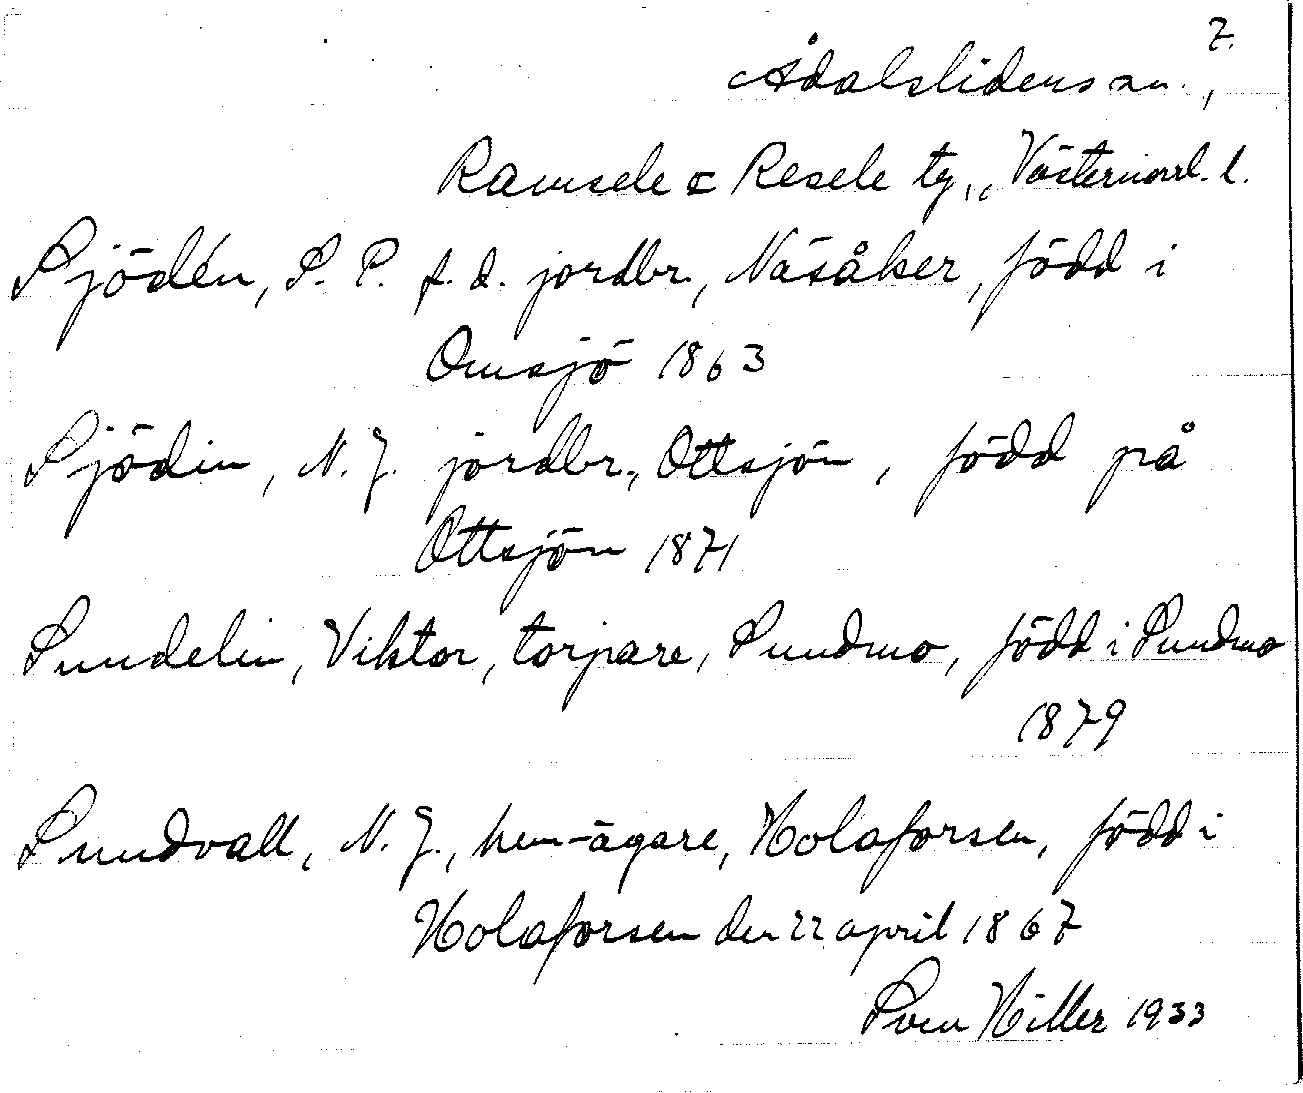 7.
Ådalslidens sn.,
Ramsele & Resele tg., Västernorrl. l.
Sjödén, S. P. f. d. jordbr., Näsåker, född i
Omsjö 1863
Sjödin, N. J. jordbr., Ottsjön, född på
Ottsjön 1871
Sundelin, Viktor, torpare, Sundmo, född i Sundmo
1879
Sundvall, N. J., hem-ägare, Holaforsen, född i
Holaforsen den 22 april 1867
Sven Hiller 1933